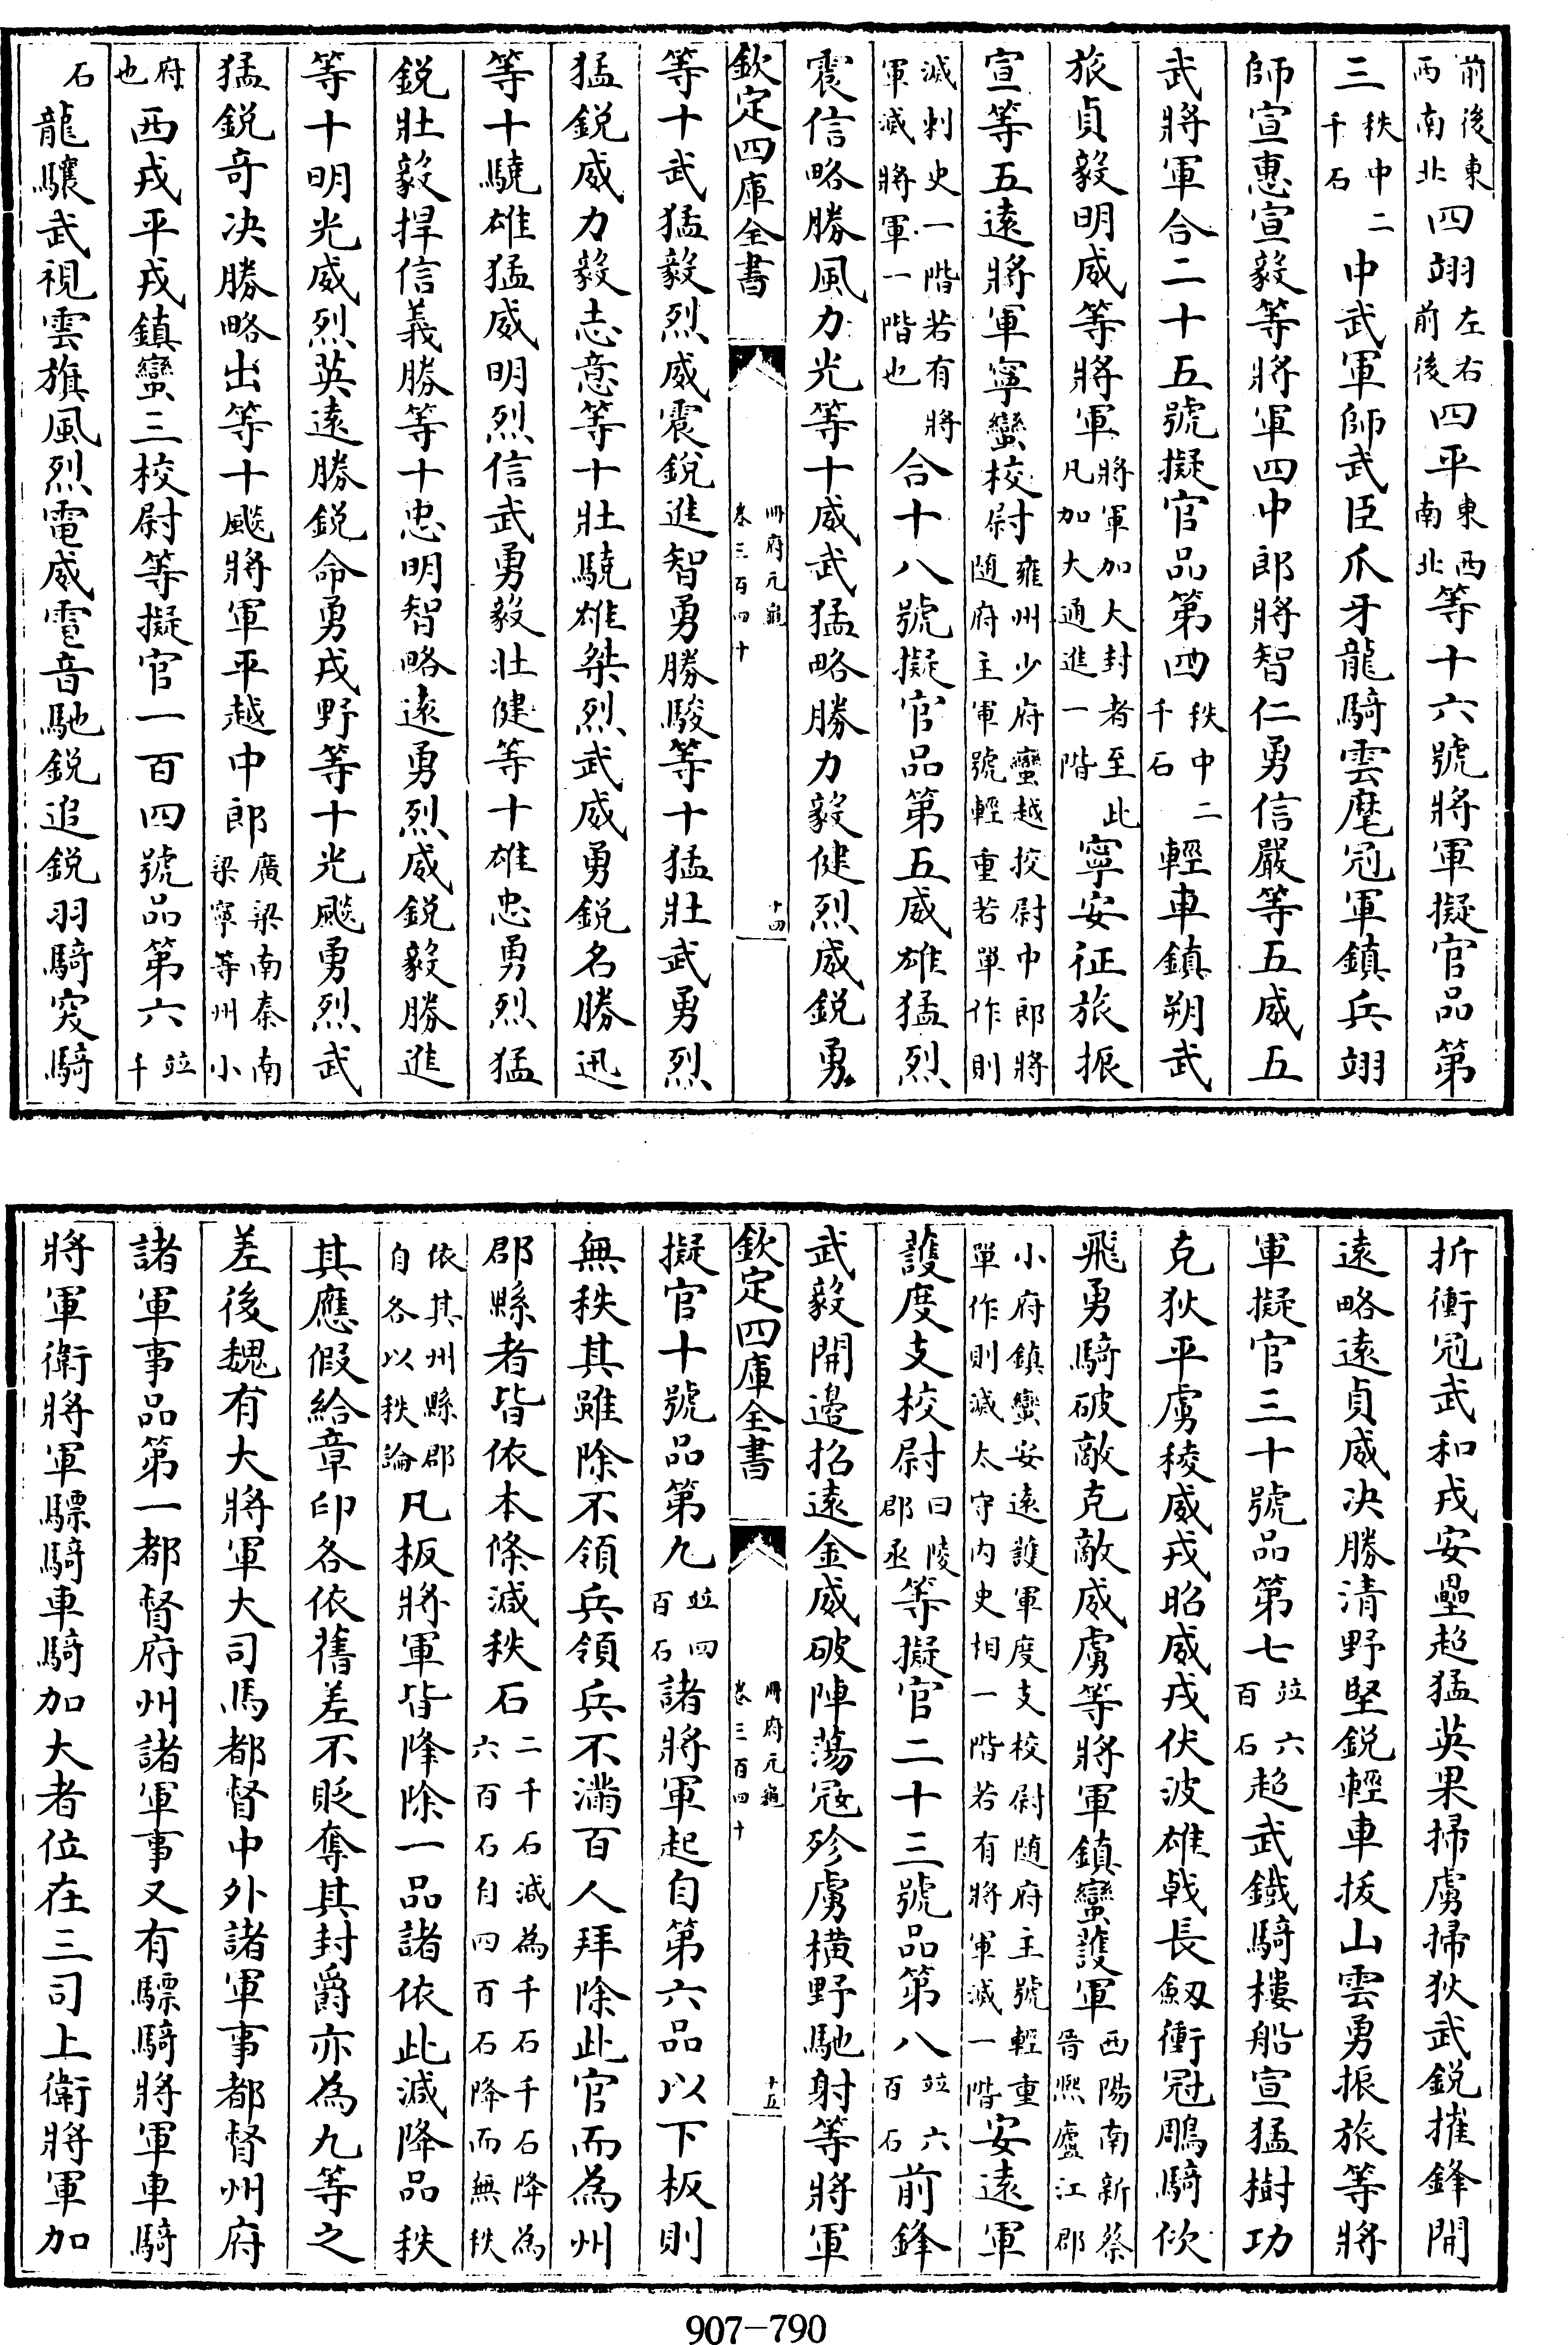 前後東西南北四翊左右前後四平東西南北等十六號將軍擬官品第
三秩中二千石中武軍師武臣爪牙龍騎雲麾冠軍鎮兵翊
師宣惠宣毅等將軍四中郎將智仁勇信嚴等五威五
武將軍合二十五號擬官品第四秩中二千石輕車鎮朔武
旅貞毅明威等將軍將軍加大封者至此凡加大通進一階寧安征旅振
宣等五遠將軍寧蠻校尉雍州少府蠻越校尉中郎將随府主軍號輕重若單作則
減刺史一階若有將軍減將軍一階也合十八號擬官品第五威雄猛烈
震信略勝風力光等十威武猛略勝力毅健烈威鋭勇
欽定四庫全書
冊府元龜
卷三百四十
十四
等十武猛毅烈威震鋭進智勇勝駿等十猛壯武勇烈
猛鋭威力毅志意等十壯驍雄桀烈武威勇鋭名勝迅
等十驍雄猛威明烈信武勇毅壯健等十雄忠勇烈猛
鋭壯毅捍信義勝等十忠明智略遠勇烈威鋭毅勝進
等十明光威烈英遠勝鋭命勇戎野等十光飈勇烈武
猛鋭奇決勝略出等十飈將軍平越中郎廣梁南秦南梁寧等州小
府也西戎平戎鎮蠻三校尉等擬官一百四號品第六竝千
石龍驤武視雲旗風烈電威雷音馳鋭追鋭羽騎突騎
折衝冠武和戎安壘超猛英果掃虜掃狄武鋭摧鋒開
遠略遠貞威決勝清野堅鋭輕車拔山雲勇振旅等將
軍擬官三十號品第七竝六百石超武鐵騎樓船宣猛樹功
克狄平虜稜威戎昭威戎伏波雄戟長劔衝冠鵰騎佽
飛勇騎破敵克敵威虜等將軍鎮蠻護軍西陽南新蔡晉熙廬江郡
小府鎮蠻安遠護軍度支校尉随府主號輕重單作則減太守内史相一階若有將軍減一階安遠軍
護度支校尉曰陵郡丞等擬官二十三號品第八竝六百石前鋒
武毅開邊招遠金威破陣蕩冦殄虜横野馳射等將軍
欽定四庫全書
冊府元龜
卷三百四十
十五
擬官十號品第九竝四百石諸將軍起自第六品以下板則
無秩其雖除不領兵領兵不滿百人拜除此官而為州
郡縣者皆依本條減秩石二千石減為千石千石降為六百石自四百石降而無秩
依其州縣郡自各以秩論凡板將軍皆降除一品諸依此減降品秩
其應假給章印各依舊差不貶奪其封爵亦為九等之
差後魏有大將軍大司馬都督中外諸軍事都督州府
諸軍事品第一都督府州諸軍事又有驃騎將軍車騎
將軍衛將軍驃騎車騎加大者位在三司上衛將軍加
907-790